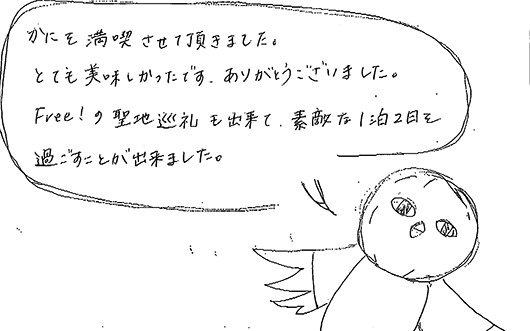 かにを満喫させて頂きました。
とても美味しかったです、ありがとうございました。
Free!の聖地巡礼も出来て、素敵な1泊2日を
過ごすことが出来ました。